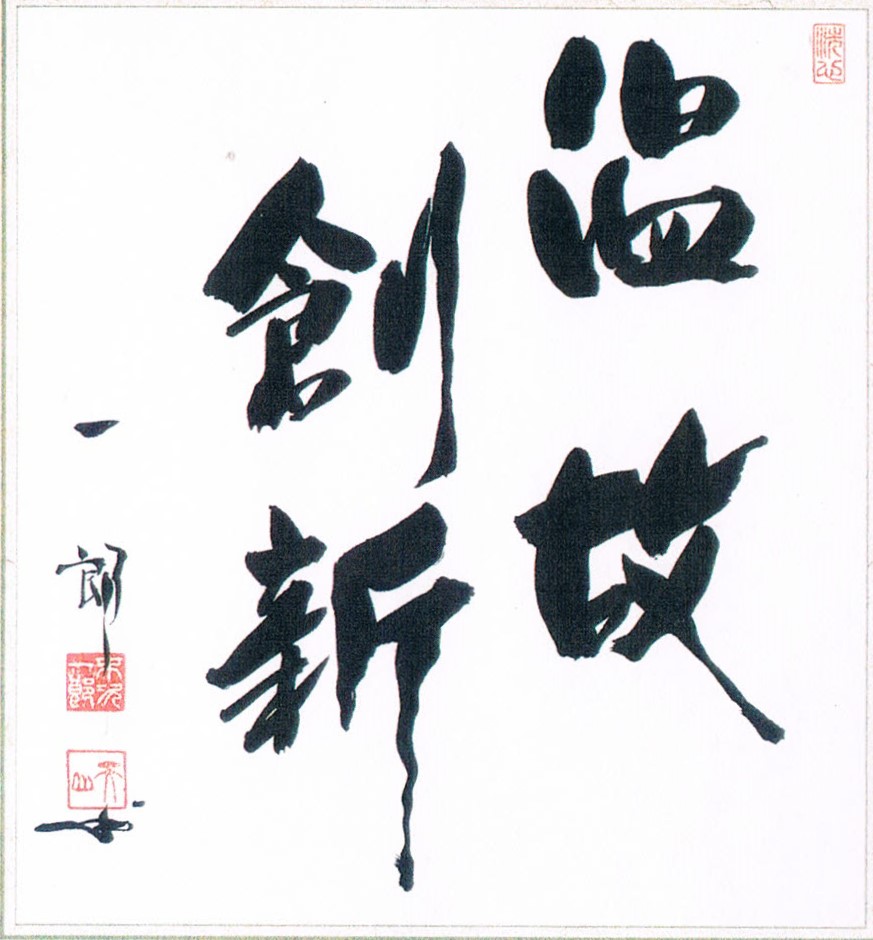 温故
創新
一郎